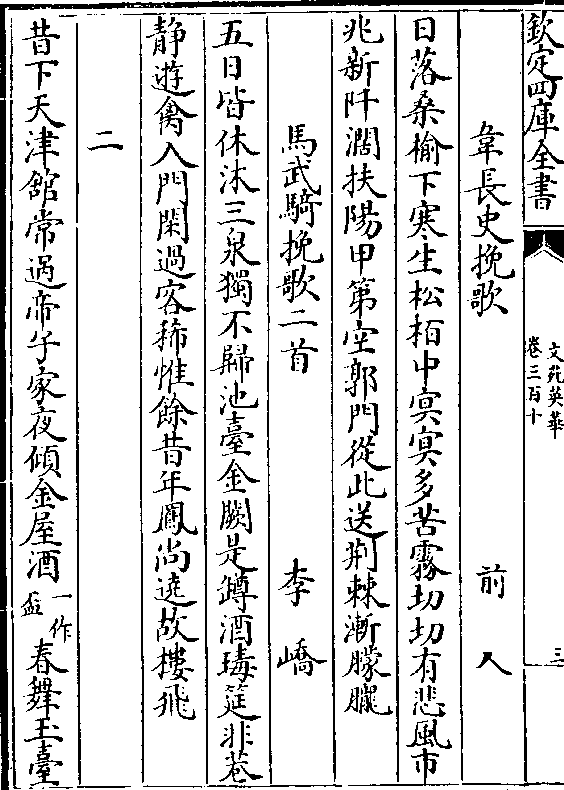 欽定四庫全書
文苑英華
卷三百十
三
韋長史挽歌 前人
日落桑榆下寒生松栢中㝠㝠多苦霧切切有悲風市
兆新阡濶扶陽甲第空郭門從此送荆棘漸朦朧
馬武騎挽歌二首 李嶠
五日皆休沐三泉獨不歸池臺金闕是罇酒瑇筵非巷
静遊禽入門閑過客稀惟餘昔年鳳尚遶故樓飛
二
昔下天津舘常過帝子家夜傾金屋酒一作盃春舞玉臺